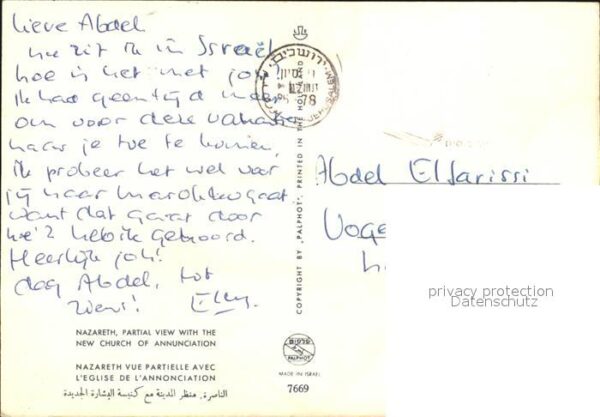 Lieve Abdel
nu zit ik in Israël
hoe is het met jou?
Ik had geen tijd meer
om voor deze vakantie
naar je toe te komen,
ik probeer het wel voor
jij naar Marokko gaat
want dat gaat door
hè? heb ik gehoord.
Heerlijk joh!
dag Abdel, tot
ziens! Elly.
NAZARETH, PARTIAL VIEW WITH THE
NEW CHURCH OF ANNUNCIATION
NAZARETH VUE PARTIELLE AVEC
L'EGLISE DE L'ANNONCIATION
الناصرة، منظر المدينة مع كنيسة البشارة الجديدة
COPYRIGHT BY „PALPHOT", PRINTED IN THE HOLYLAND
ירושלים
78
Abdel Elfarissi
Voge
privacy protection
Datenschutz
פלפוט
PALPHOT
MADE IN ISRAEL
7669